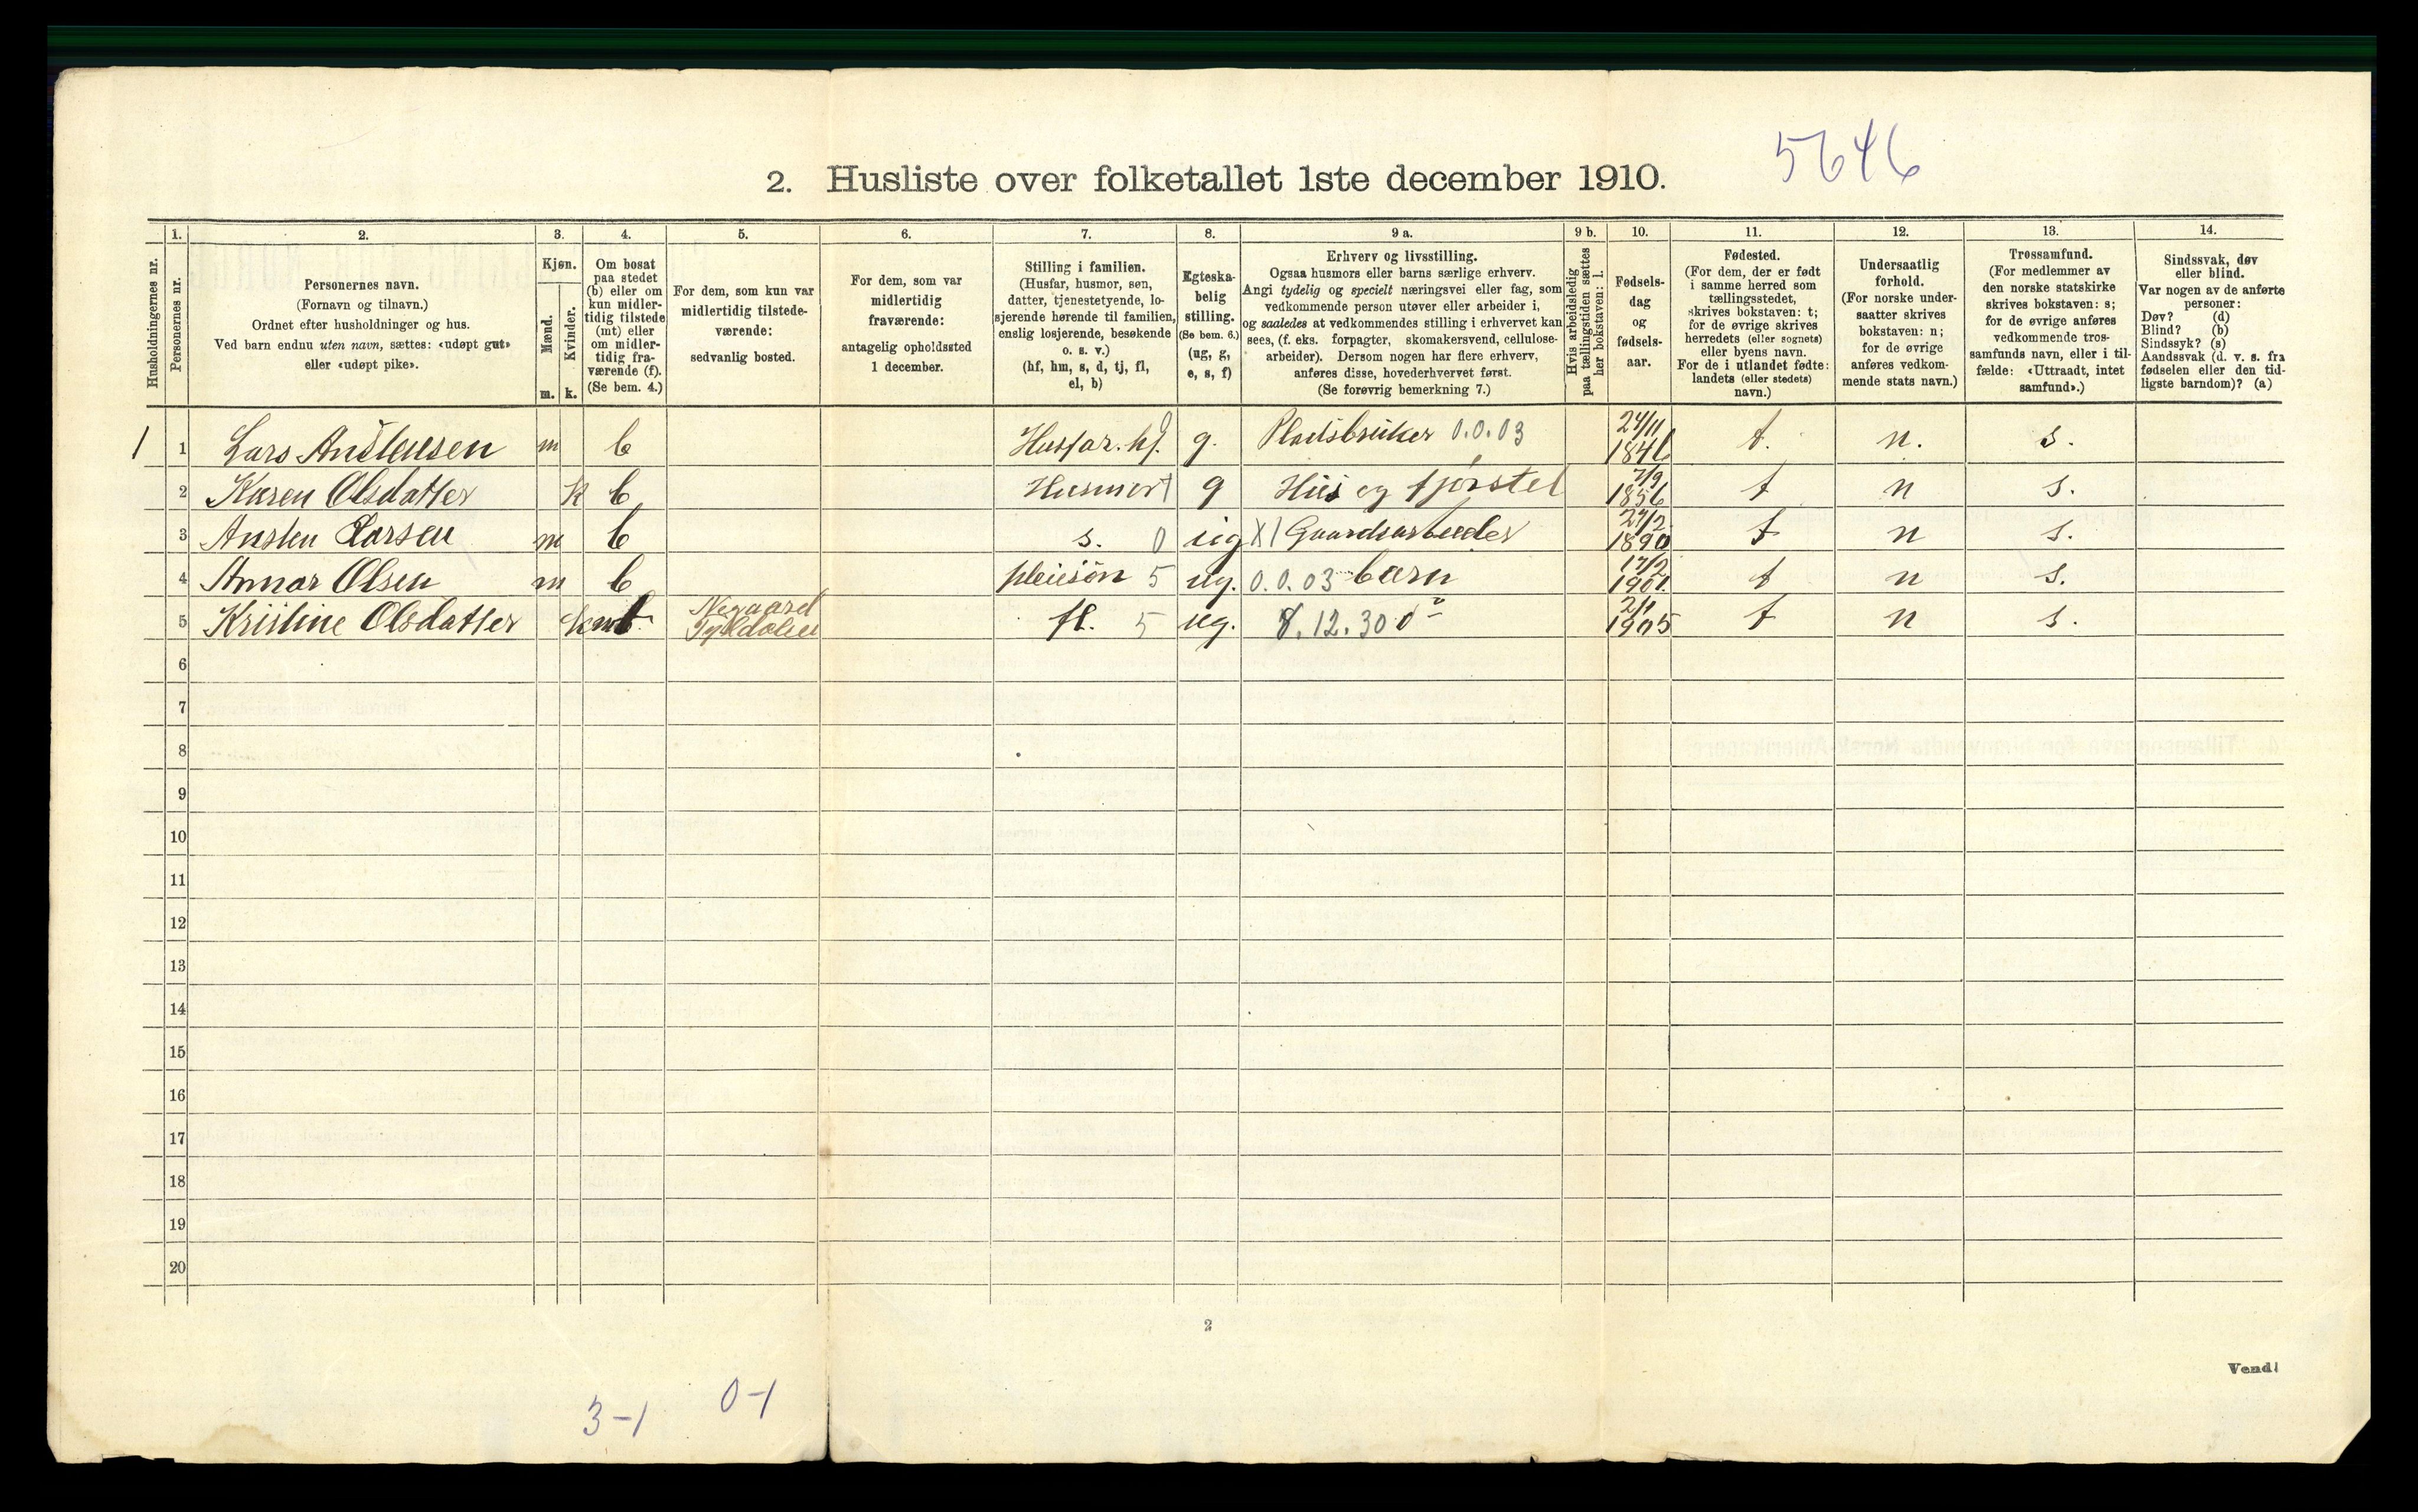 5646
2. Husliste over folketallet 1ste december 1910.
Husholdningernes nr.
1.
Personernes nr.
2.
Personernes navn.
(Fornavn og tilnavn.)
Ordnet efter husholdninger og hus.
Ved barn endnu uten navn, sættes: «udøpt gut»
eller «udøpt pike».
3.
Kjøn.
Mænd.
Kvinder.
m. k.
4.
Om bosat
paa stedet
(b) eller om
kun midler-
tidig tilstede
(mt) eller
om midler-
tidig fra-
værende (f).
(Se bem. 4.)
5.
For dem, som kun var
midlertidig tilstede-
værende:
sedvanlig bosted.
6.
For dem, som var
midlertidig
fraværende:
antagelig opholdssted
1 december.
7.
Stilling i familien.
(Husfar, husmor, søn,
datter, tjenestetyende, lo-
sjerende hørende til familien,
enslig losjerende, besøkende
o. s. v.)
(hf, hm, s, d, tj, fl,
el, b)
8.
Egteska-
belig
stilling.
(Se bem. 6.)
(ug, g,
e, s, f)
9 a.
Erhverv og livsstilling.
Ogsaa husmors eller barns særlige erhverv.
Angi tydelig og specielt næringsvei eller fag, som
vedkommende person utøver eller arbeider i,
og saaledes at vedkommendes stilling i erhvervet kan
sees, (f. eks. forpagter, skomakersvend, cellulose-
arbeider). Dersom nogen har flere erhverv,
anføres disse, hovederhvervet først.
(Se forøvrig bemerkning 7.)
9 b.
Hvis arbeidsledig
paa tællingstiden sættes
her bokstaven: l.
10.
Fødsels-
dag
og
fødsels-
aar.
11.
Fødested.
(For dem, der er født
i samme herred som
tællingsstedet,
skrives bokstaven: t;
for de øvrige skrives
herredets (eller sognets)
eller byens navn.
For de i utlandet fødte:
landets (eller stedets)
navn.)
12.
Undersaatlig
forhold.
(For norske under-
saatter skrives
bokstaven: n;
for de øvrige
anføres vedkom-
mende stats navn.)
13.
Trossamfund.
(For medlemmer av
den norske statskirke
skrives bokstaven: s;
for de øvrige anføres
vedkommende tros-
samfunds navn, eller i til-
fælde: «Uttraadt, intet
samfund».)
14.
Sindssvak, døv
eller blind.
Var nogen av de anførte
personer:
Døv? (d)
Blind? (b)
Sindssyk? (s)
Aandssvak (d. v. s. fra
fødselen eller den tid-
ligste barndom)? (a)
1 1 Lars Anstensen m b Husfar. hf. g. Pladsbruker 0.0.03 24/11 1846 t. n. s.
2 Karen Olsdatter k b Husmor g Hus og fjørstel 7/9 1856 t n s.
3 Ansten Larsen m b s. 0 ug X1 Gaardsarbeider 24/2 1890 t n s.
4 Annar Olsen m b pleiesøn 5 ug. 0.0.03 barn 17/2 1901. t n s.
5 Kristine Olsdatter k mt Tyldalen fl. 5 ug. 8.12.30 2/1 1905 t n s.
6
7
8
9
10
11
12
13
14
15
16
17
18
19
20
2
Vend!
3-1 0-1